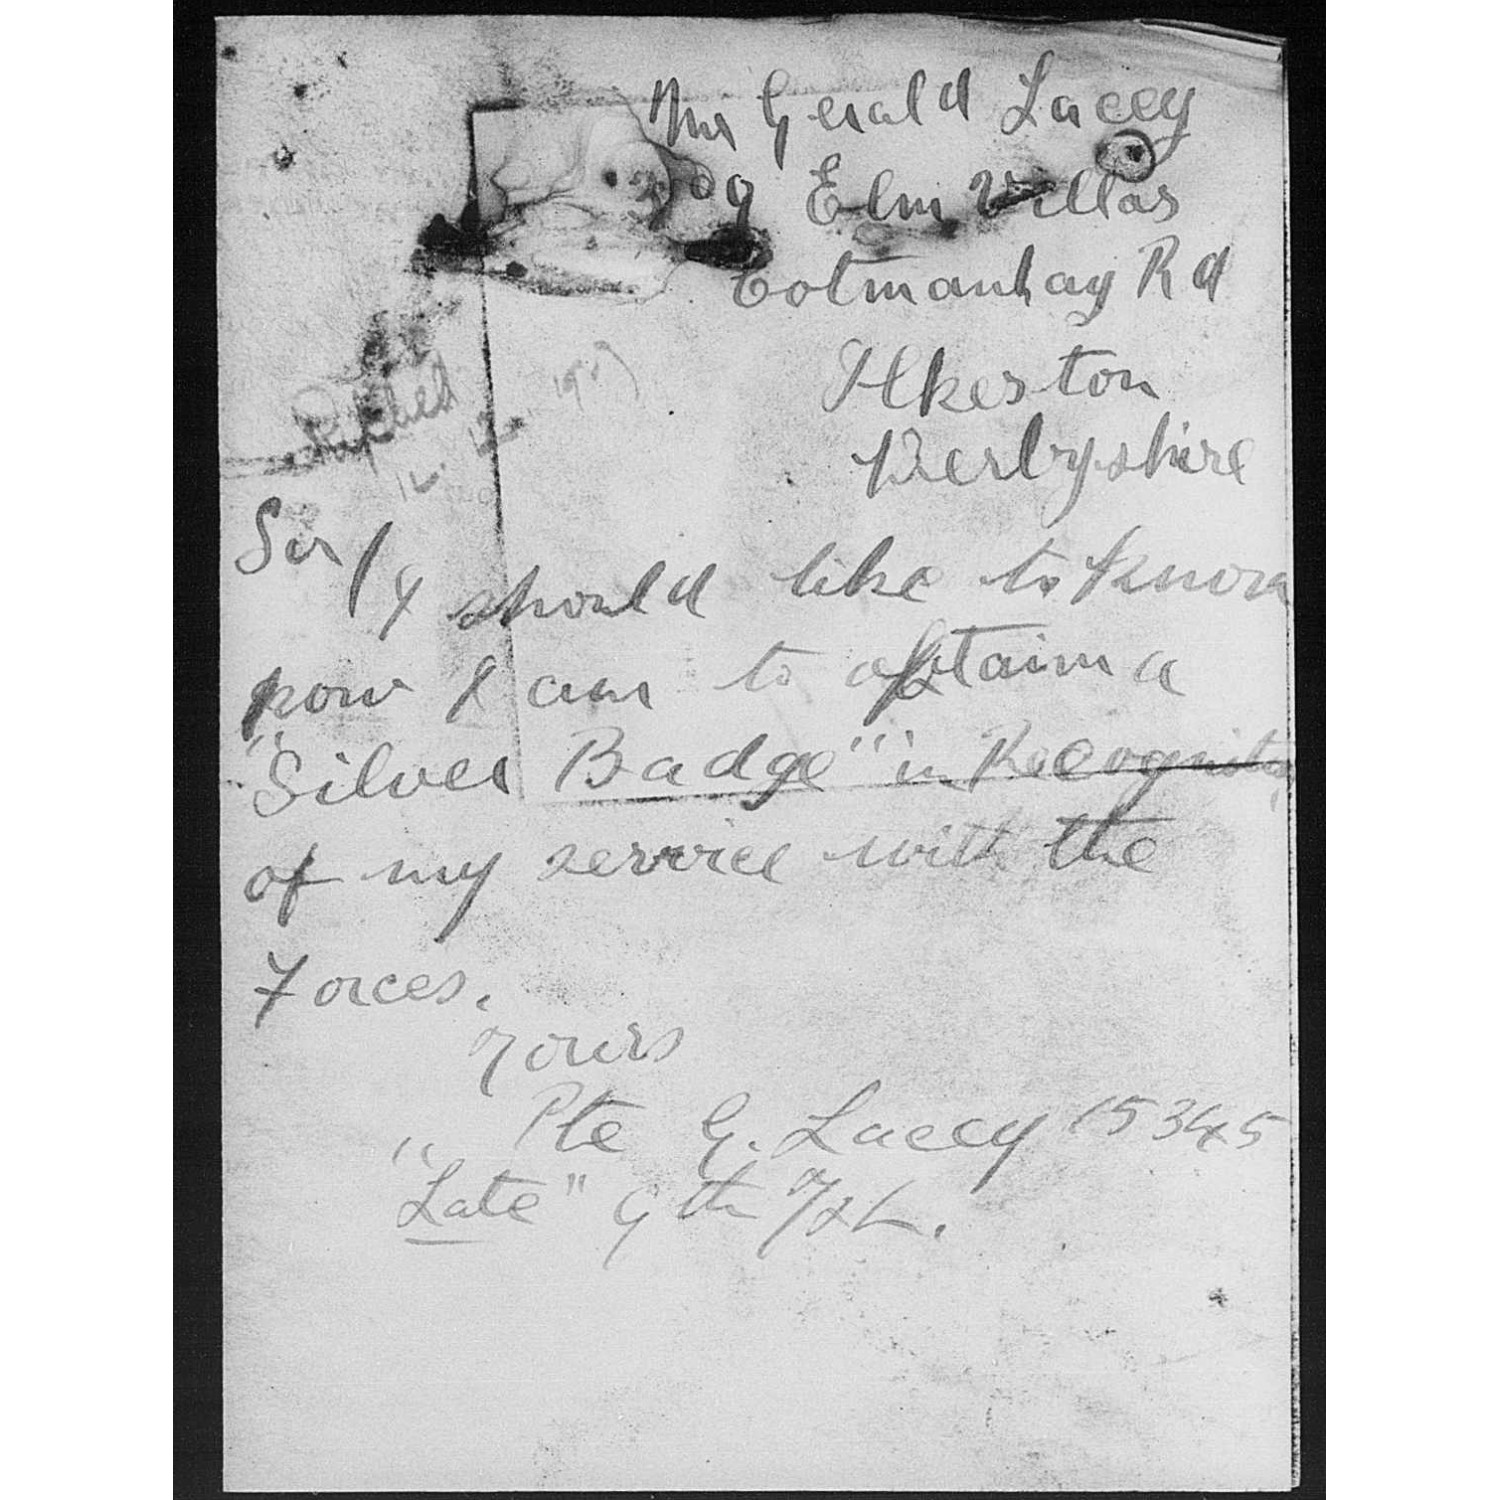 Mr Gerald Lacey
09 Elm Villas
Cotmanhay Rd
Ilkeston
Derbyshire
Replied
Sir/
I should like to know
how I am to obtain a
"Silver Badge" in Recognition
of my service with the
Forces.
Yours
Pte G. Lacey 15345
"Late" 9th